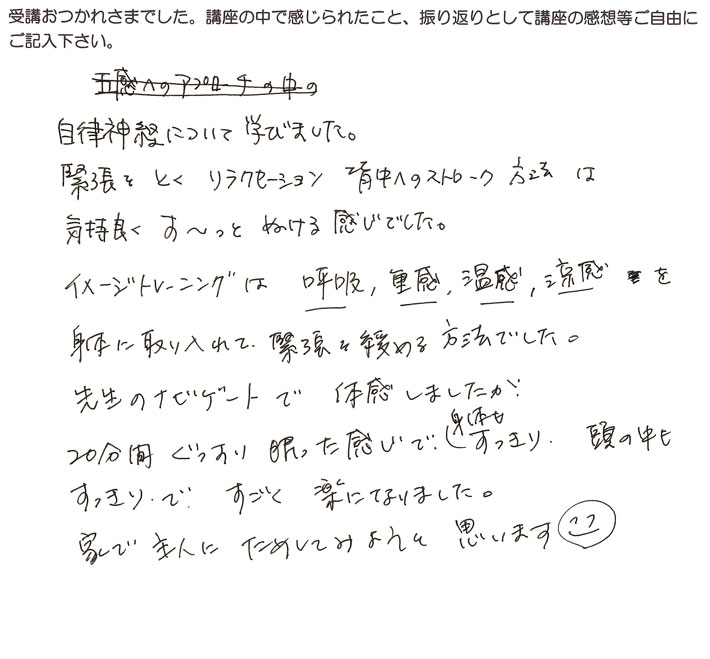 受講おつかれさまでした。講座の中で感じられたこと、振り返りとして講座の感想等ご自由に
ご記入下さい。
五感へのアプローチの中の
自律神経について学びました。
緊張をとくリラクセーション 背中へのストローク方法は
気持良くす〜っとぬける感じでした。
イメージトレーニングは 呼吸, 重感, 温感, 涼感 を
身体に取り入れて、緊張を緩める方法でした。
先生のナビゲートで 体感しましたが、
20分間ぐっすり眠った感じで、身体もすっきり、頭の中も
すっきりで、すごく楽になりました。
家で主人にためしてみようと思います